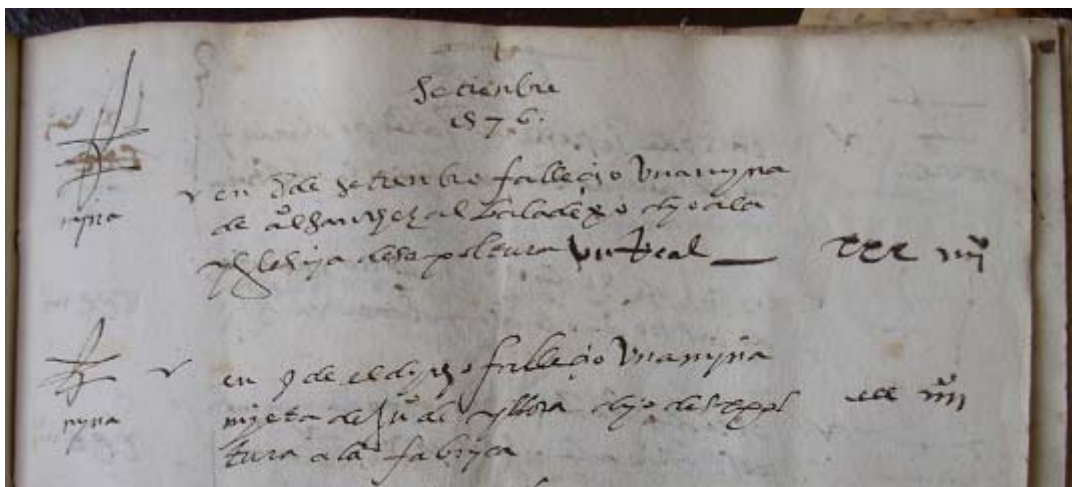 Setienbre
1576.
nyña
en de setienbre fallecio Vna nyña
de al baladexo dyo ala
yglesya de sepoltura Vn Real — xxx iiij
nyña
en 9 de el dycho fallecio Vna nyña
njeta de Ju° de dyo de sepol
tura a la fabryca